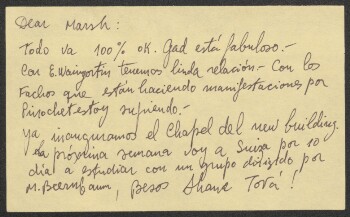 Dear Marsh:
Todo va 100% ok. Gad está fabuloso.-
Con E. Waingortin tenemos linda relación.- Con los
Fachos que están haciendo manifestaciones por
Pinochet estoy sufriendo.-
Ya inauguramos el Chapel del new building.
La próxima semana voy a Suiza por 10
día a estudiar con un grupo dirigido por
M. Beernbaum, Besos Shana Tová!